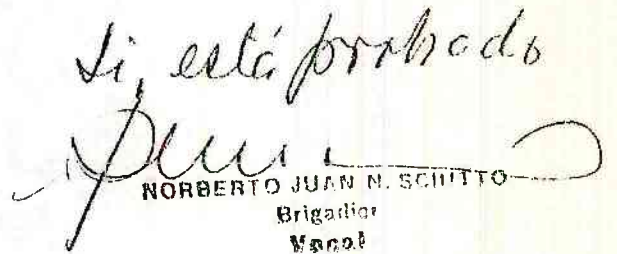 Si, está probado
NORBERTO JUAN N. SCHITTO
Brigadier
Vocal